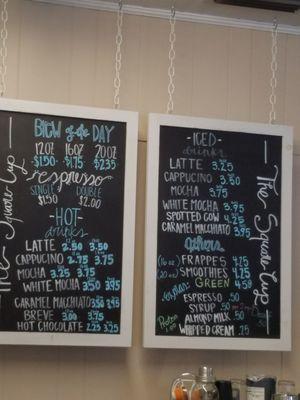 The Square Cup
BREW of the DAY
12oz 16oz 20oz
$1.50 $1.75 $2.35
espresso
SINGLE DOUBLE
$1.50 $2.00
-HOT-
drinks
LATTE 2.50 3.50
CAPPUCINO 2.75 3.75
MOCHA 3.25 3.75
WHITE MOCHA 3.50 3.95
CARAMEL MACCHIATO 3.50 3.95
BREVE 3.00 3.75
HOT CHOCOLATE 2.25 3.25
-ICED-
drinks
LATTE 3.25
CAPPUCINO 3.50
MOCHA 3.75
WHITE MOCHA 3.95
SPOTTED COW 4.25
CARAMEL MACCHIATO 3.95
Others
(16oz) FRAPPES 4.25
(20oz) SMOOTHIES 4.25
GREEN 4.59
ESPRESSO .50
SYRUP .50
ALMOND MILK .50
WHIPPED CREAM .75
Protein
The Square Cup